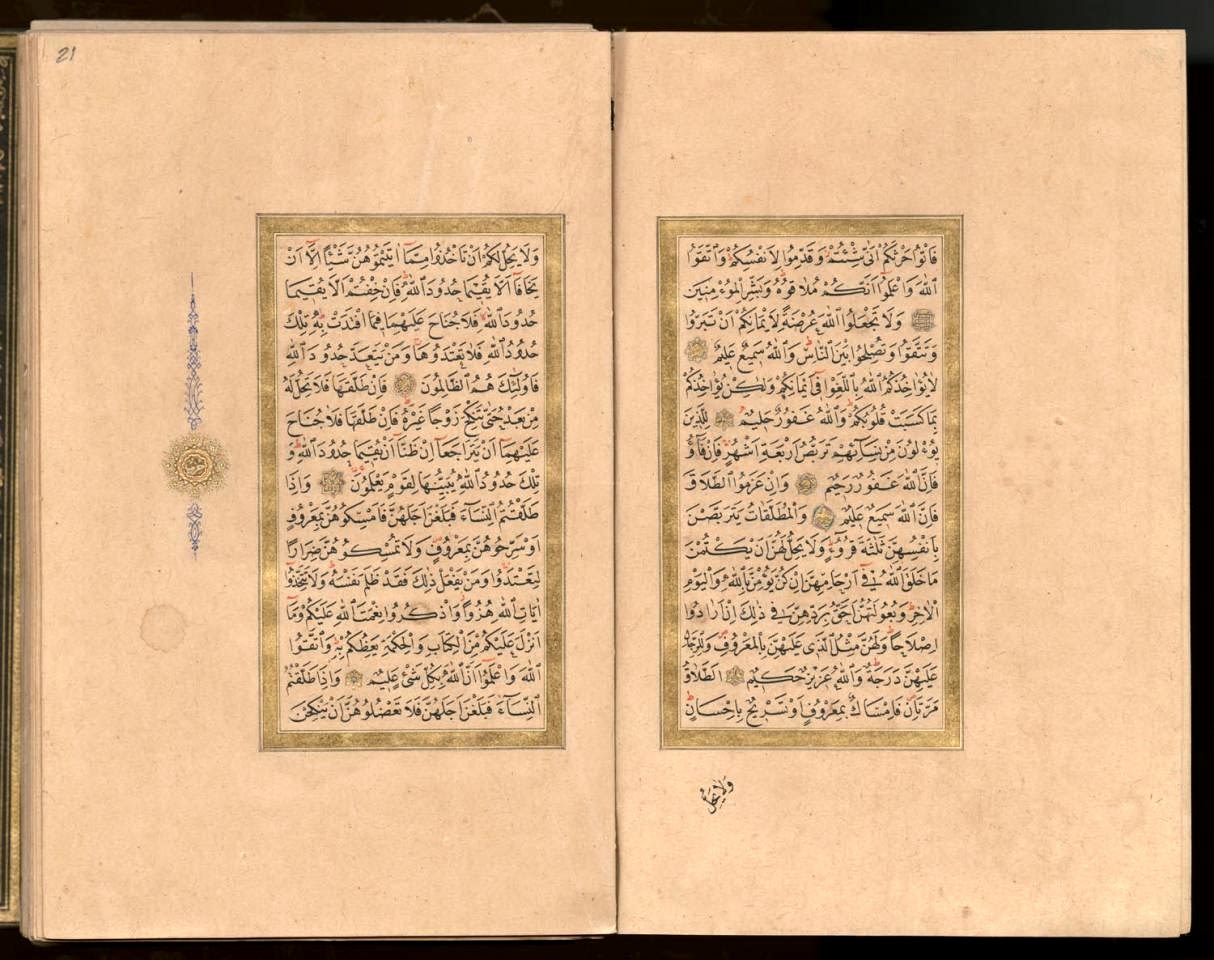 فَاْتُوا حَرْثَكُمْ اَنّٰى شِئْتُمْ وَقَدِّمُوا لِاَنْفُسِكُمْ وَاتَّقُوا
اللّٰهَ وَاعْلَمُوا اَنَّكُمْ مُلَاقُوهُ وَبَشِّرِ الْمُؤْمِنِينَ
وَلَا تَجْعَلُوا اللّٰهَ عُرْضَةً لِاَيْمَانِكُمْ اَنْ تَبَرُّوا
وَتَتَّقُوا وَتُصْلِحُوا بَيْنَ النَّاسِ وَاللّٰهُ سَمِيعٌ عَلِيمٌ
لَا يُؤَاخِذُكُمُ اللّٰهُ بِاللَّغْوِ فِى اَيْمَانِكُمْ وَلٰكِنْ يُؤَاخِذُكُمْ
بِمَا كَسَبَتْ قُلُوبُكُمْ وَاللّٰهُ غَفُورٌ حَلِيمٌ لِلَّذِينَ
يُؤْلُونَ مِنْ نِسَائِهِمْ تَرَبُّصُ اَرْبَعَةِ اَشْهُرٍ فَاِنْ فَاؤُ
فَاِنَّ اللّٰهَ غَفُورٌ رَحِيمٌ وَاِنْ عَزَمُوا الطَّلَاقَ
فَاِنَّ اللّٰهَ سَمِيعٌ عَلِيمٌ وَالْمُطَلَّقَاتُ يَتَرَبَّصْنَ
بِاَنْفُسِهِنَّ ثَلٰثَةَ قُرُوءٍ وَلَا يَحِلُّ لَهُنَّ اَنْ يَكْتُمْنَ
مَا خَلَقَ اللّٰهُ فِى اَرْحَامِهِنَّ اِنْ كُنَّ يُؤْمِنَّ بِاللّٰهِ وَالْيَوْمِ
الْاٰخِرِ وَبُعُولَتُهُنَّ اَحَقُّ بِرَدِّهِنَّ فِى ذٰلِكَ اِنْ اَرَادُوا
اِصْلَاحًا وَلَهُنَّ مِثْلُ الَّذِى عَلَيْهِنَّ بِالْمَعْرُوفِ وَلِلرِّجَالِ
عَلَيْهِنَّ دَرَجَةٌ وَاللّٰهُ عَزِيزٌ حَكِيمٌ الطَّلَاقُ
مَرَّتَانِ فَاِمْسَاكٌ بِمَعْرُوفٍ اَوْ تَسْرِيحٌ بِاِحْسَانٍ
وَلَا يَحِلُّ
21
وَلَا يَحِلُّ لَكُمْ اَنْ تَاْخُذُوا مِمَّا اٰتَيْتُمُوهُنَّ شَيْئًا اِلَّا اَنْ
يَخَافَا اَلَّا يُقِيمَا حُدُودَ اللّٰهِ فَاِنْ خِفْتُمْ اَلَّا يُقِيمَا
حُدُودَ اللّٰهِ فَلَا جُنَاحَ عَلَيْهِمَا فِيمَا افْتَدَتْ بِهِ تِلْكَ
حُدُودُ اللّٰهِ فَلَا تَعْتَدُوهَا وَمَنْ يَتَعَدَّ حُدُودَ اللّٰهِ
فَاُولٰئِكَ هُمُ الظَّالِمُونَ فَاِنْ طَلَّقَهَا فَلَا تَحِلُّ لَهُ
مِنْ بَعْدُ حَتّٰى تَنْكِحَ زَوْجًا غَيْرَهُ فَاِنْ طَلَّقَهَا فَلَا جُنَاحَ
عَلَيْهِمَا اَنْ يَتَرَاجَعَا اِنْ ظَنَّا اَنْ يُقِيمَا حُدُودَ اللّٰهِ وَ
تِلْكَ حُدُودُ اللّٰهِ يُبَيِّنُهَا لِقَوْمٍ يَعْلَمُونَ وَاِذَا
طَلَّقْتُمُ النِّسَاءَ فَبَلَغْنَ اَجَلَهُنَّ فَاَمْسِكُوهُنَّ بِمَعْرُوفٍ
اَوْ سَرِّحُوهُنَّ بِمَعْرُوفٍ وَلَا تُمْسِكُوهُنَّ ضِرَارًا
لِتَعْتَدُوا وَمَنْ يَفْعَلْ ذٰلِكَ فَقَدْ ظَلَمَ نَفْسَهُ وَلَا تَتَّخِذُوا
اٰيَاتِ اللّٰهِ هُزُوًا وَاذْكُرُوا نِعْمَتَ اللّٰهِ عَلَيْكُمْ وَمَا
اَنْزَلَ عَلَيْكُمْ مِنَ الْكِتَابِ وَالْحِكْمَةِ يَعِظُكُمْ بِهِ وَاتَّقُوا
اللّٰهَ وَاعْلَمُوا اَنَّ اللّٰهَ بِكُلِّ شَىْءٍ عَلِيمٌ وَاِذَا طَلَّقْتُمُ
النِّسَاءَ فَبَلَغْنَ اَجَلَهُنَّ فَلَا تَعْضُلُوهُنَّ اَنْ يَنْكِحْنَ